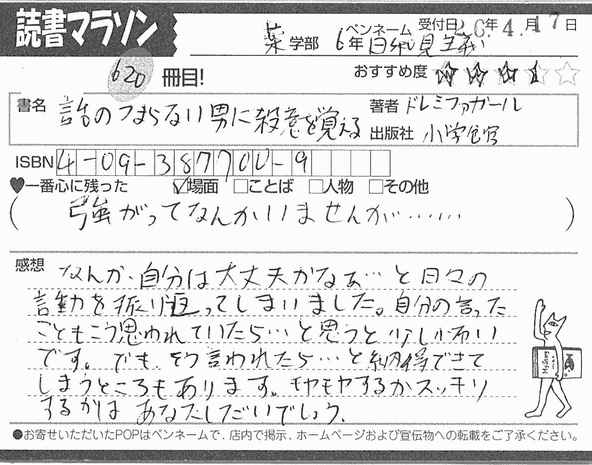 読書マラソン
薬学部 6年 ペンネーム 日和見主義 受付日 26年4月17日
620 冊目!
おすすめ度 ★★★☆☆
書名 話のつまらない男に殺意を覚える
著者名 ドレミファガール
出版社 小学館
ISBN 4-09-387700-9
♥一番心に残った ☑場面 □ことば □人物 □その他
(強がってなんかいませんが……)
感想 なんか、自分は大丈夫かなぁ…と日々の
言動を振り返ってしまいました。自分の言った
こともこう思われていたら…と思うと少し怖い
です。でも、そう言われたら…と納得できて
しまうところもあります。モヤモヤするかスッキリ
するかはあなたしだいでしょう。
●お寄せいただいたPOPはペンネームで、店内で掲示、ホームページおよび宣伝物への転載をご了承ください。